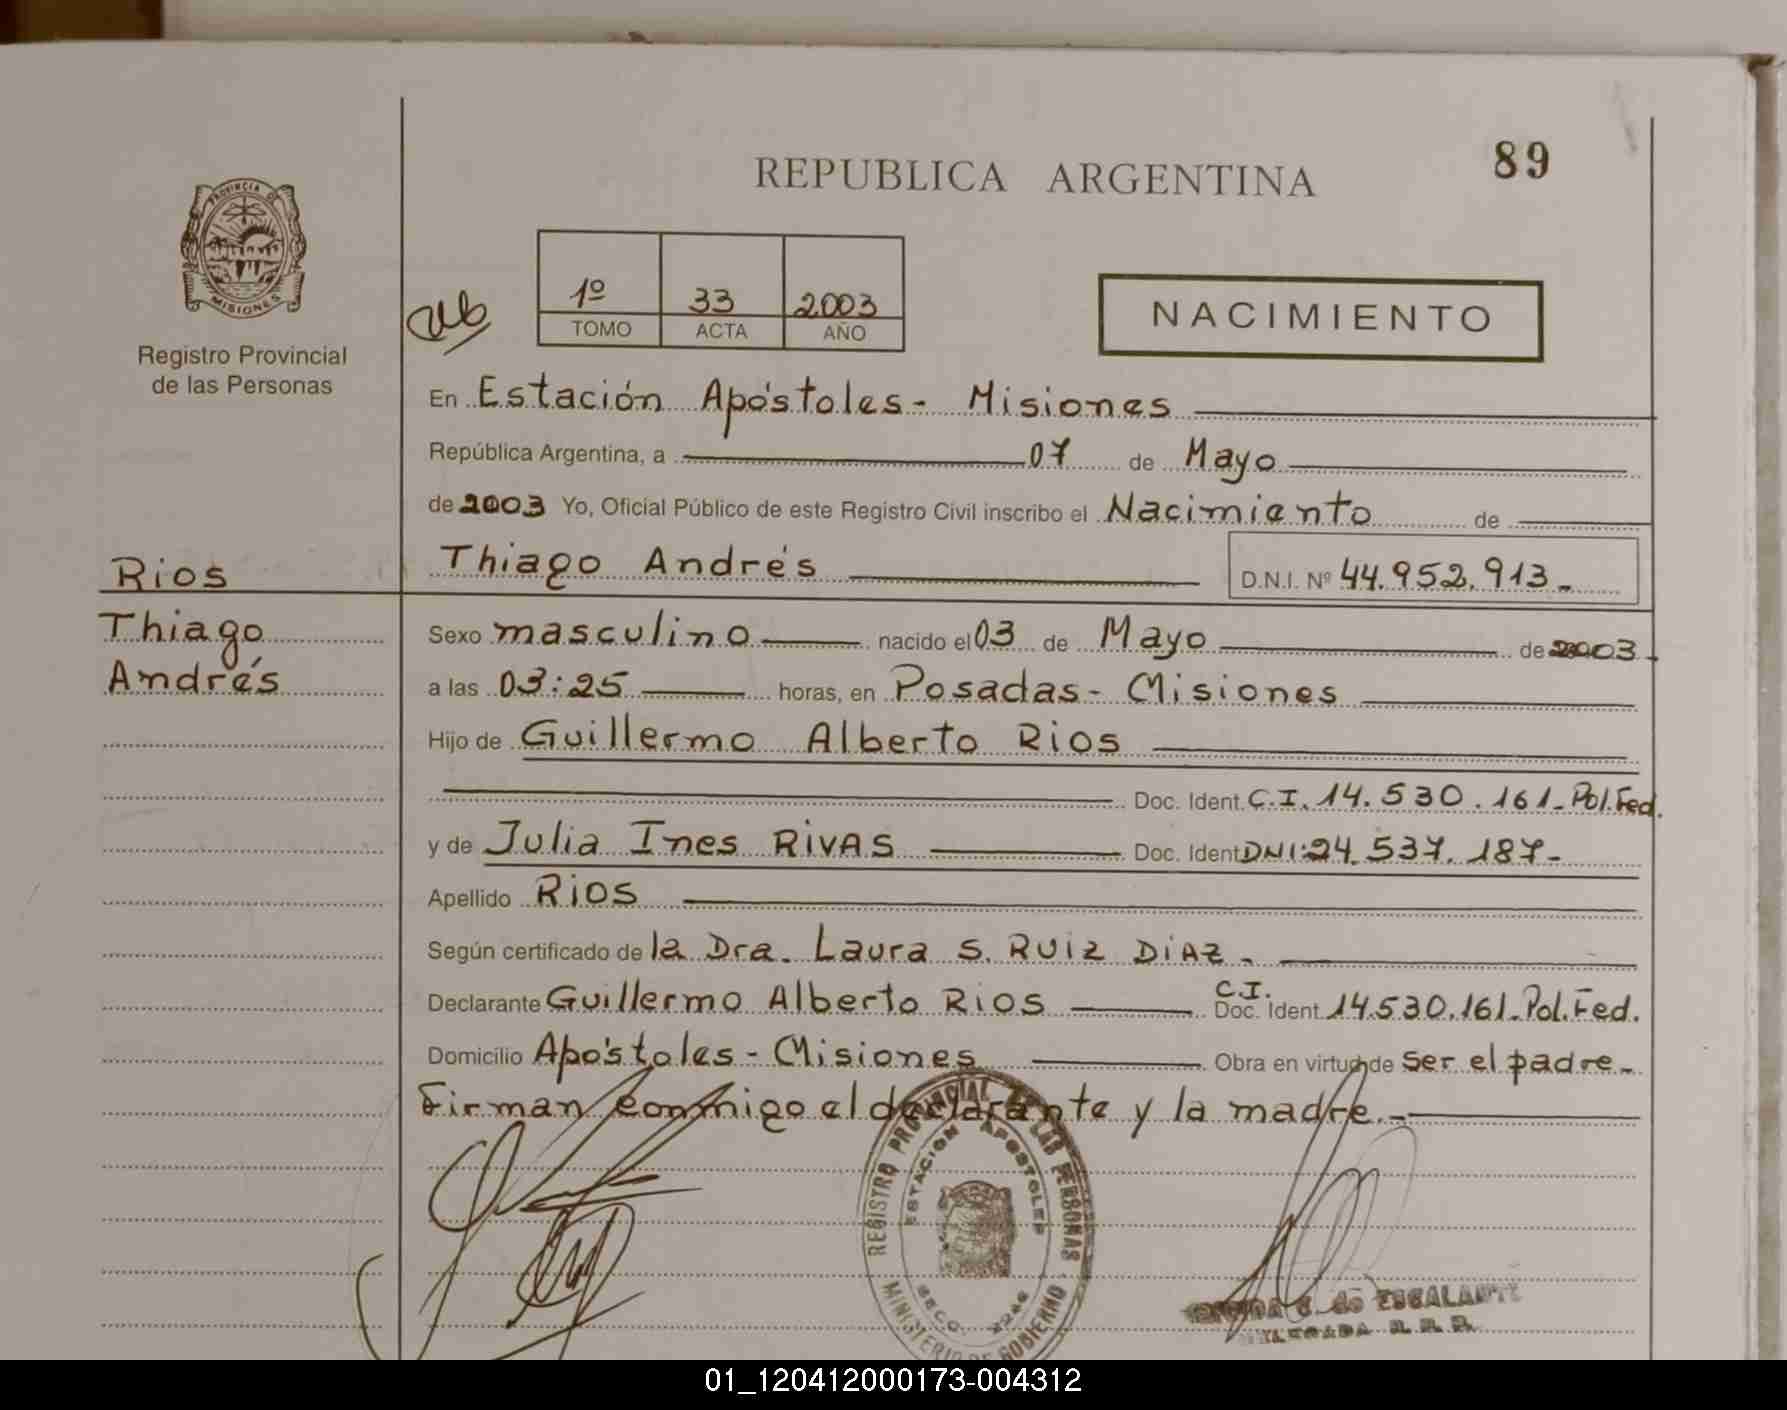 REPUBLICA ARGENTINA
89
PROVINCIA DE
MISIONES
Registro Provincial
de las Personas
1º 33 2003
TOMO ACTA AÑO
NACIMIENTO
En Estación Apóstoles - Misiones
República Argentina, a 07 de Mayo
de 2003 Yo, Oficial Público de este Registro Civil inscribo el Nacimiento de
Rios
Thiago Andrés D.N.I. Nº 44.952.913.-
Thiago
Sexo masculino nacido el 03 de Mayo de 2003
Andrés
a las 03:25 horas, en Posadas - Misiones
Hijo de Guillermo Alberto Rios
Doc. Ident. C.I. 14.530.161- Pol. Fed.
y de Julia Ines RIVAS Doc. Ident DNI: 24.537.187-
Apellido RIOS
Según certificado de la Dra. Laura S. RUIZ DIAZ -
Declarante Guillermo Alberto RIOS C.I. Doc. Ident. 14.530.161- Pol. Fed.
Domicilio Apóstoles - Misiones Obra en virtud de ser el padre -
Firman conmigo el declarante y la madre.-
REGISTRO PROVINCIAL DE LAS PERSONAS
ESTACION APOSTOLES
MINISTERIO DE GOBIERNO
de ESCALANTE
01_120412000173-004312